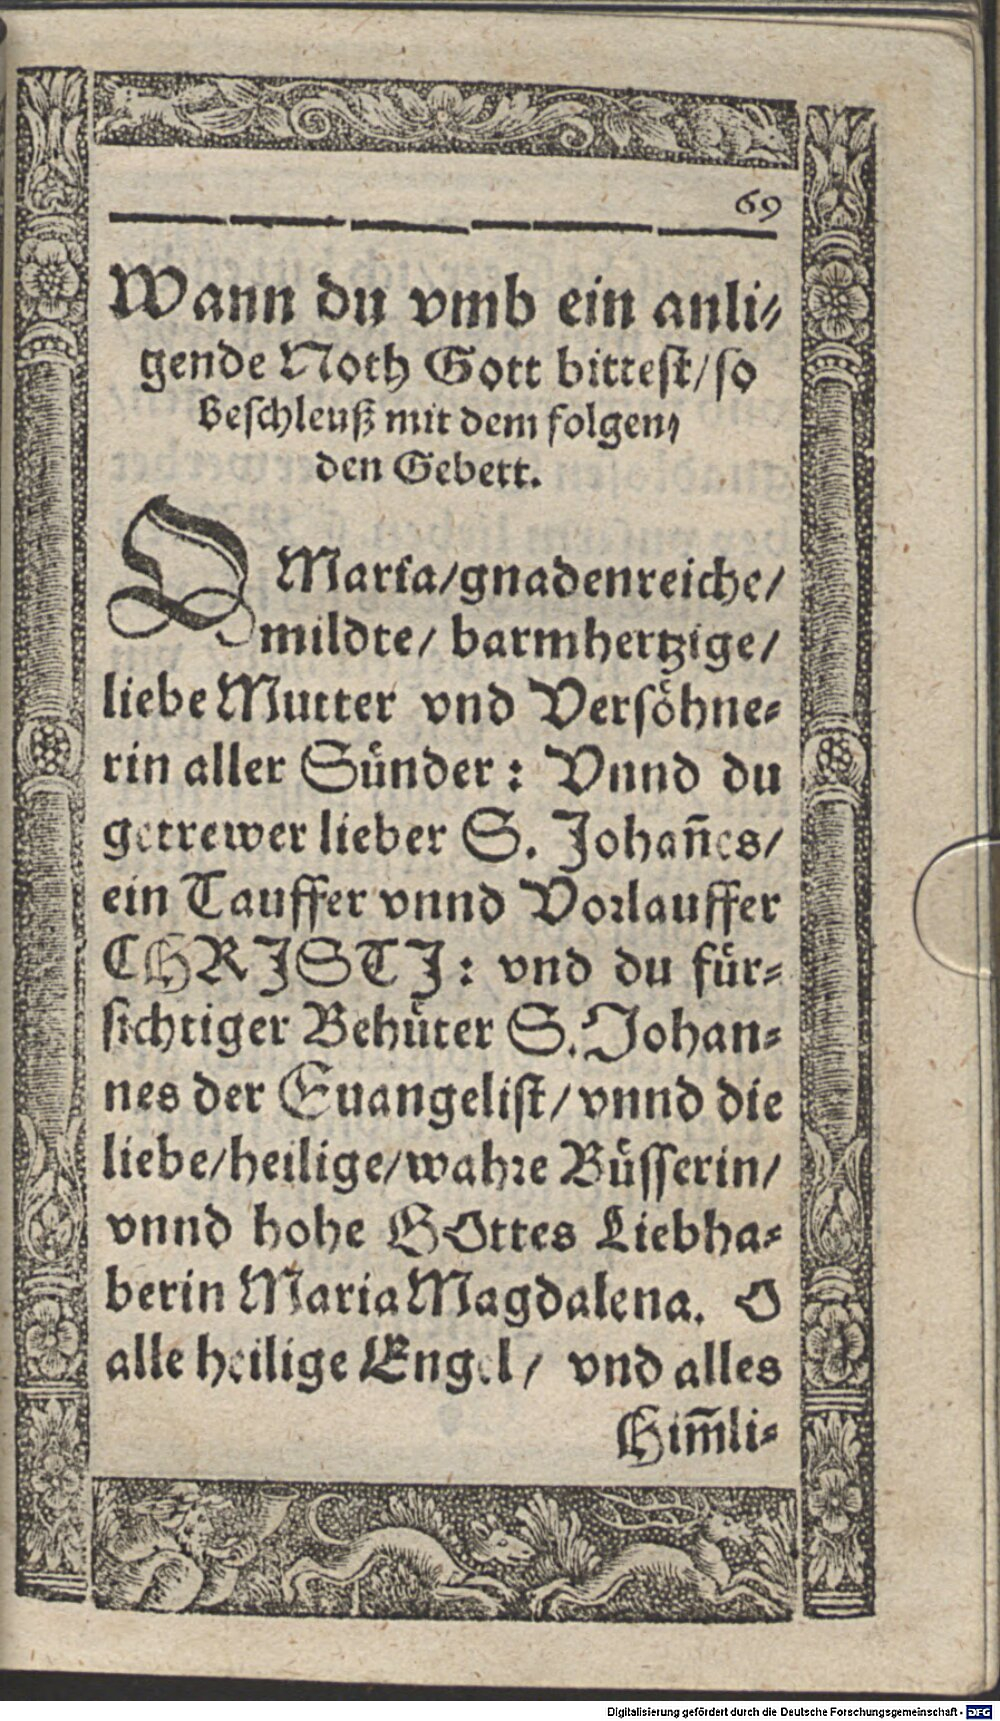 69
Wann du vmb ein anli⸗
gende Noth Gott bittest/ so
Beschleuß mit dem folgen⸗
den Gebett.
O Maria/gnadenreiche/
mildte/ barmhertzige/
liebe Mutter vnd Versöhne⸗
rin aller Sünder: Vnnd du
getrewer lieber S. Johañes/
ein Tauffer vnnd Vorlauffer
CHRISTI: vnd du für⸗
sichtiger Behüter S. Johan⸗
nes der Euangelist/ vnnd die
liebe/heilige/wahre Büsserin/
vnnd hohe GOttes Liebha⸗
berin Maria Magdalena. O
alle heilige Engel/ vnd alles
Him̃li⸗
Digitalisierung gefördert durch die Deutsche Forschungsgemeinschaft - DFG